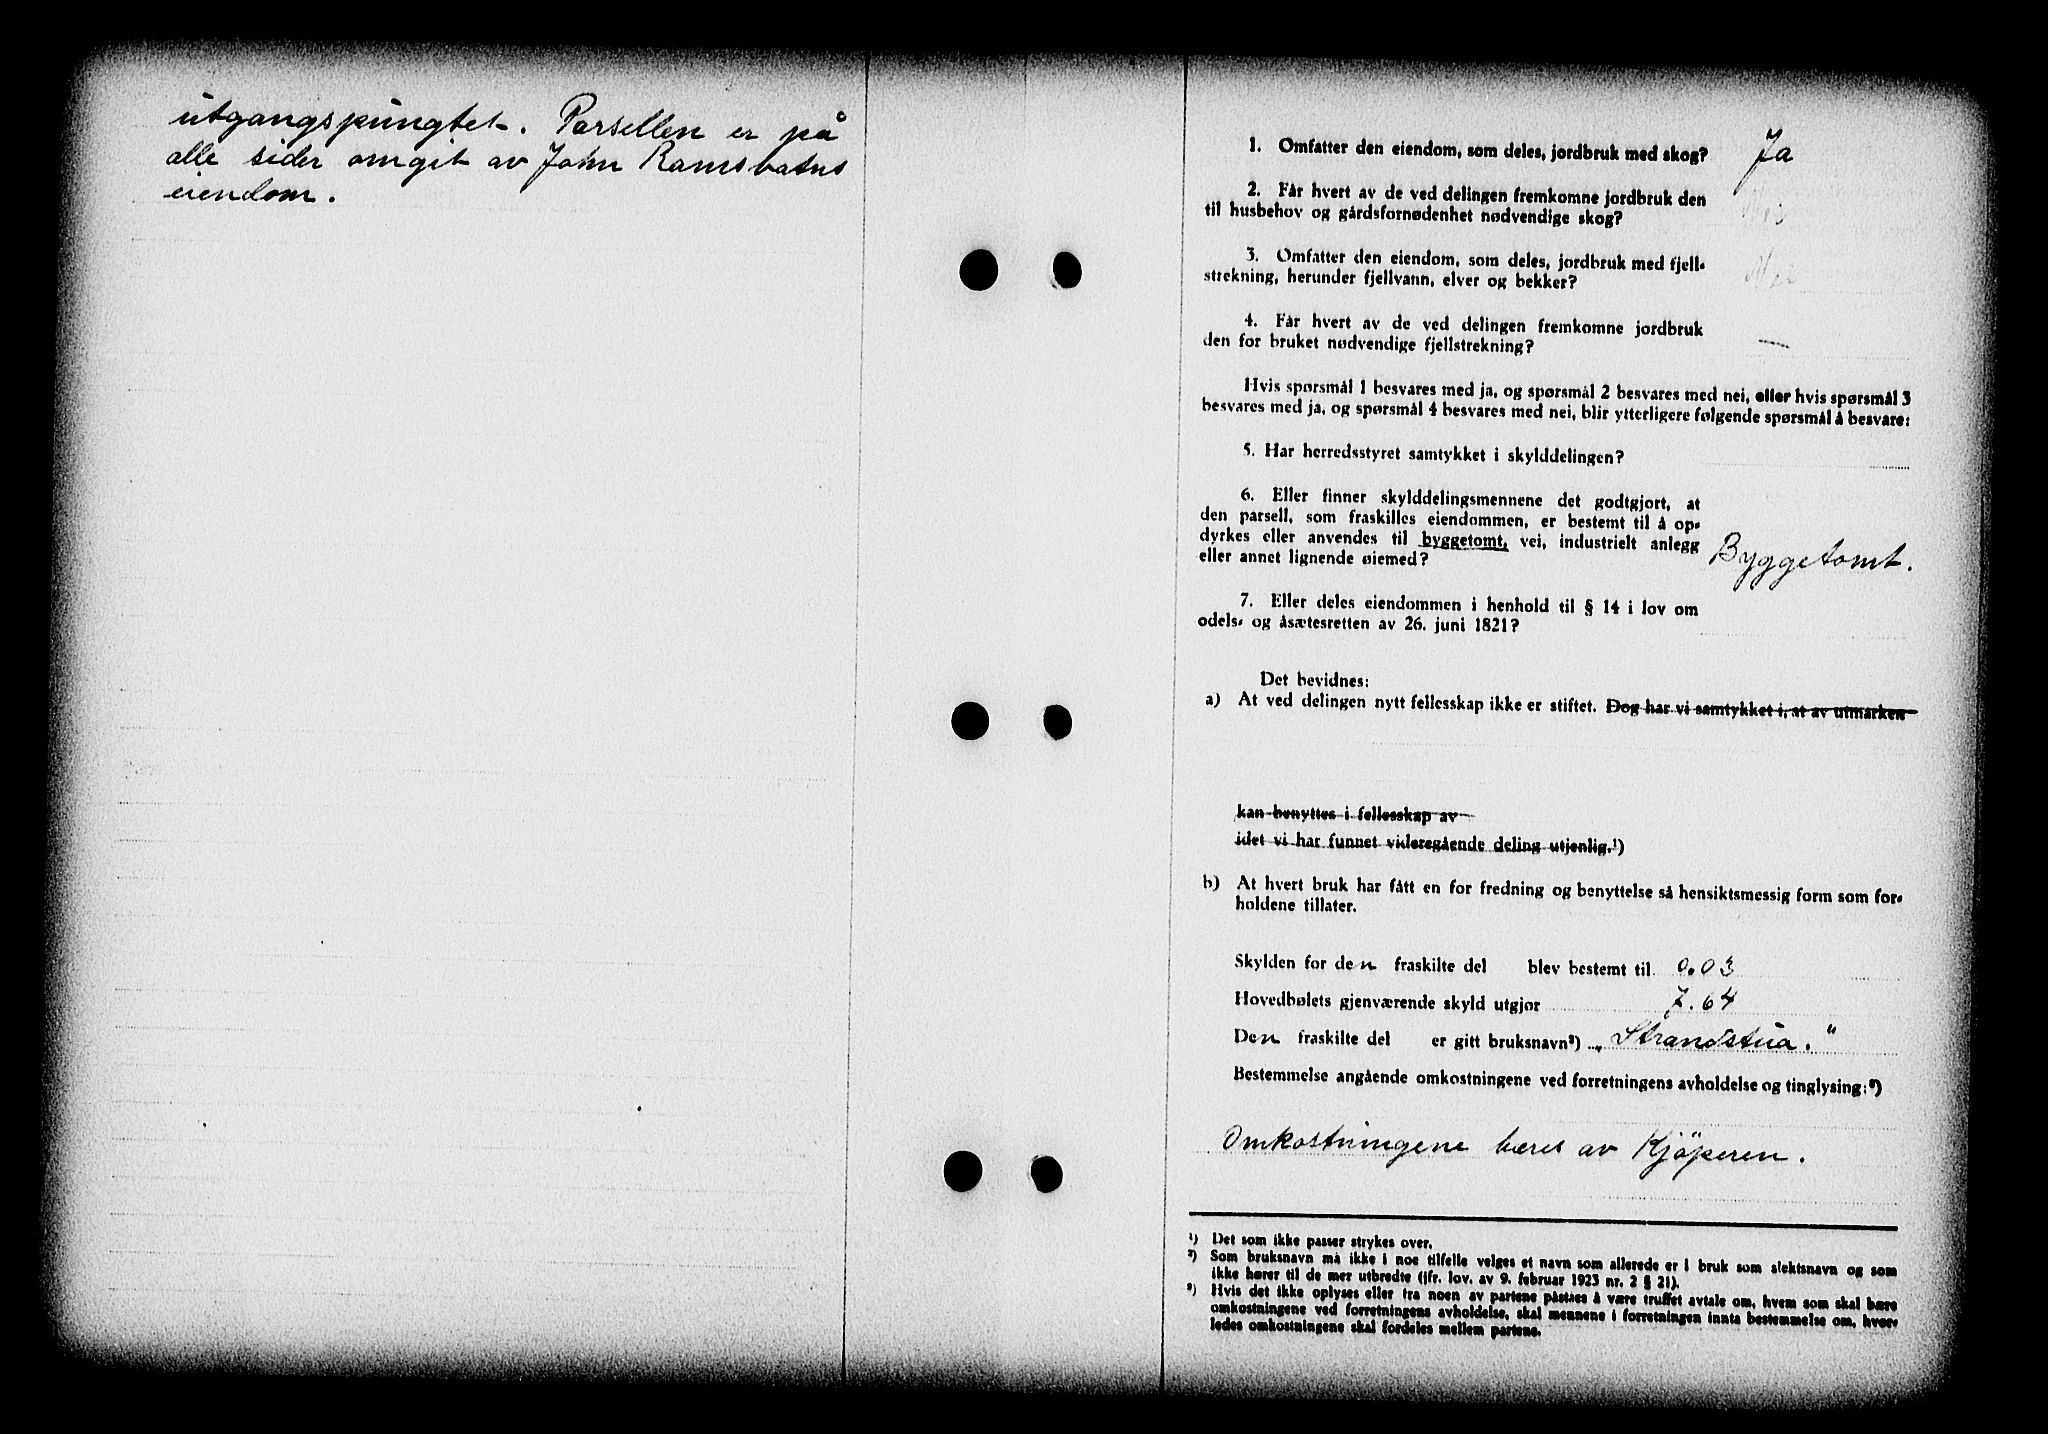 utgangspungtet. Parsellen er på
alle sider omgit av John Ramsvatns
eiendom.
1. Omfatter den eiendom, som deles, jordbruk med skog? Ja
2. Får hvert av de ved delingen fremkomne jordbruk den
til husbehov og gårdsfornødenhet nødvendige skog? Nei
3. Omfatter den eiendom, som deles, jordbruk med fjell-
strekning, herunder fjellvann, elver og bekker? Nei
4. Får hvert av de ved delingen fremkomne jordbruk
den for bruket nødvendige fjellstrekning? —
Hvis spørsmål 1 besvares med ja, og spørsmål 2 besvares med nei, eller hvis spørsmål 3
besvares med ja, og spørsmål 4 besvares med nei, blir ytterligere følgende spørsmål å besvare:
5. Har herredsstyret samtykket i skylddelingen?
6. Eller finner skylddelingsmennene det godtgjort, at
den parsell, som fraskilles eiendommen, er bestemt til å op-
dyrkes eller anvendes til byggetomt, vei, industrielt anlegg
eller annet lignende øiemed? Byggetomt.
7. Eller deles eiendommen i henhold til § 14 i lov om
odels- og åsætesretten av 26. juni 1821?
Det bevidnes:
a) At ved delingen nytt fellesskap ikke er stiftet. Dog har vi samtykket i, at av utmarken
kan benyttes i fellesskap av
idet vi har funnet videregående deling utjenlig.¹)
b) At hvert bruk har fått en for fredning og benyttelse så hensiktsmessig form som for-
holdene tillater.
Skylden for den fraskilte del blev bestemt til 0.03
Hovedbølets gjenværende skyld utgjør 7.64
Den fraskilte del er gitt bruksnavn²) „Strandstua."
Bestemmelse angående omkostningene ved forretningens avholdelse og tinglysing:³)
Omkostningene bæres av Kjöperen.
¹) Det som ikke passer strykes over.
²) Som bruksnavn må ikke i noe tilfelle velges et navn som allerede er i bruk som slektsnavn og som
ikke hører til de mer utbredte (jfr. lov. av 9. februar 1923 nr. 2 § 21).
³) Hvis det ikke oplyses eller fra noen av partene påstaes å være truffet avtale om, hvem som skal bære
omkostningene ved forretningens avholdelse, skal mennene i forretningen innta bestemmelse om, hvor-
ledes omkostningene skal fordeles mellem partene.